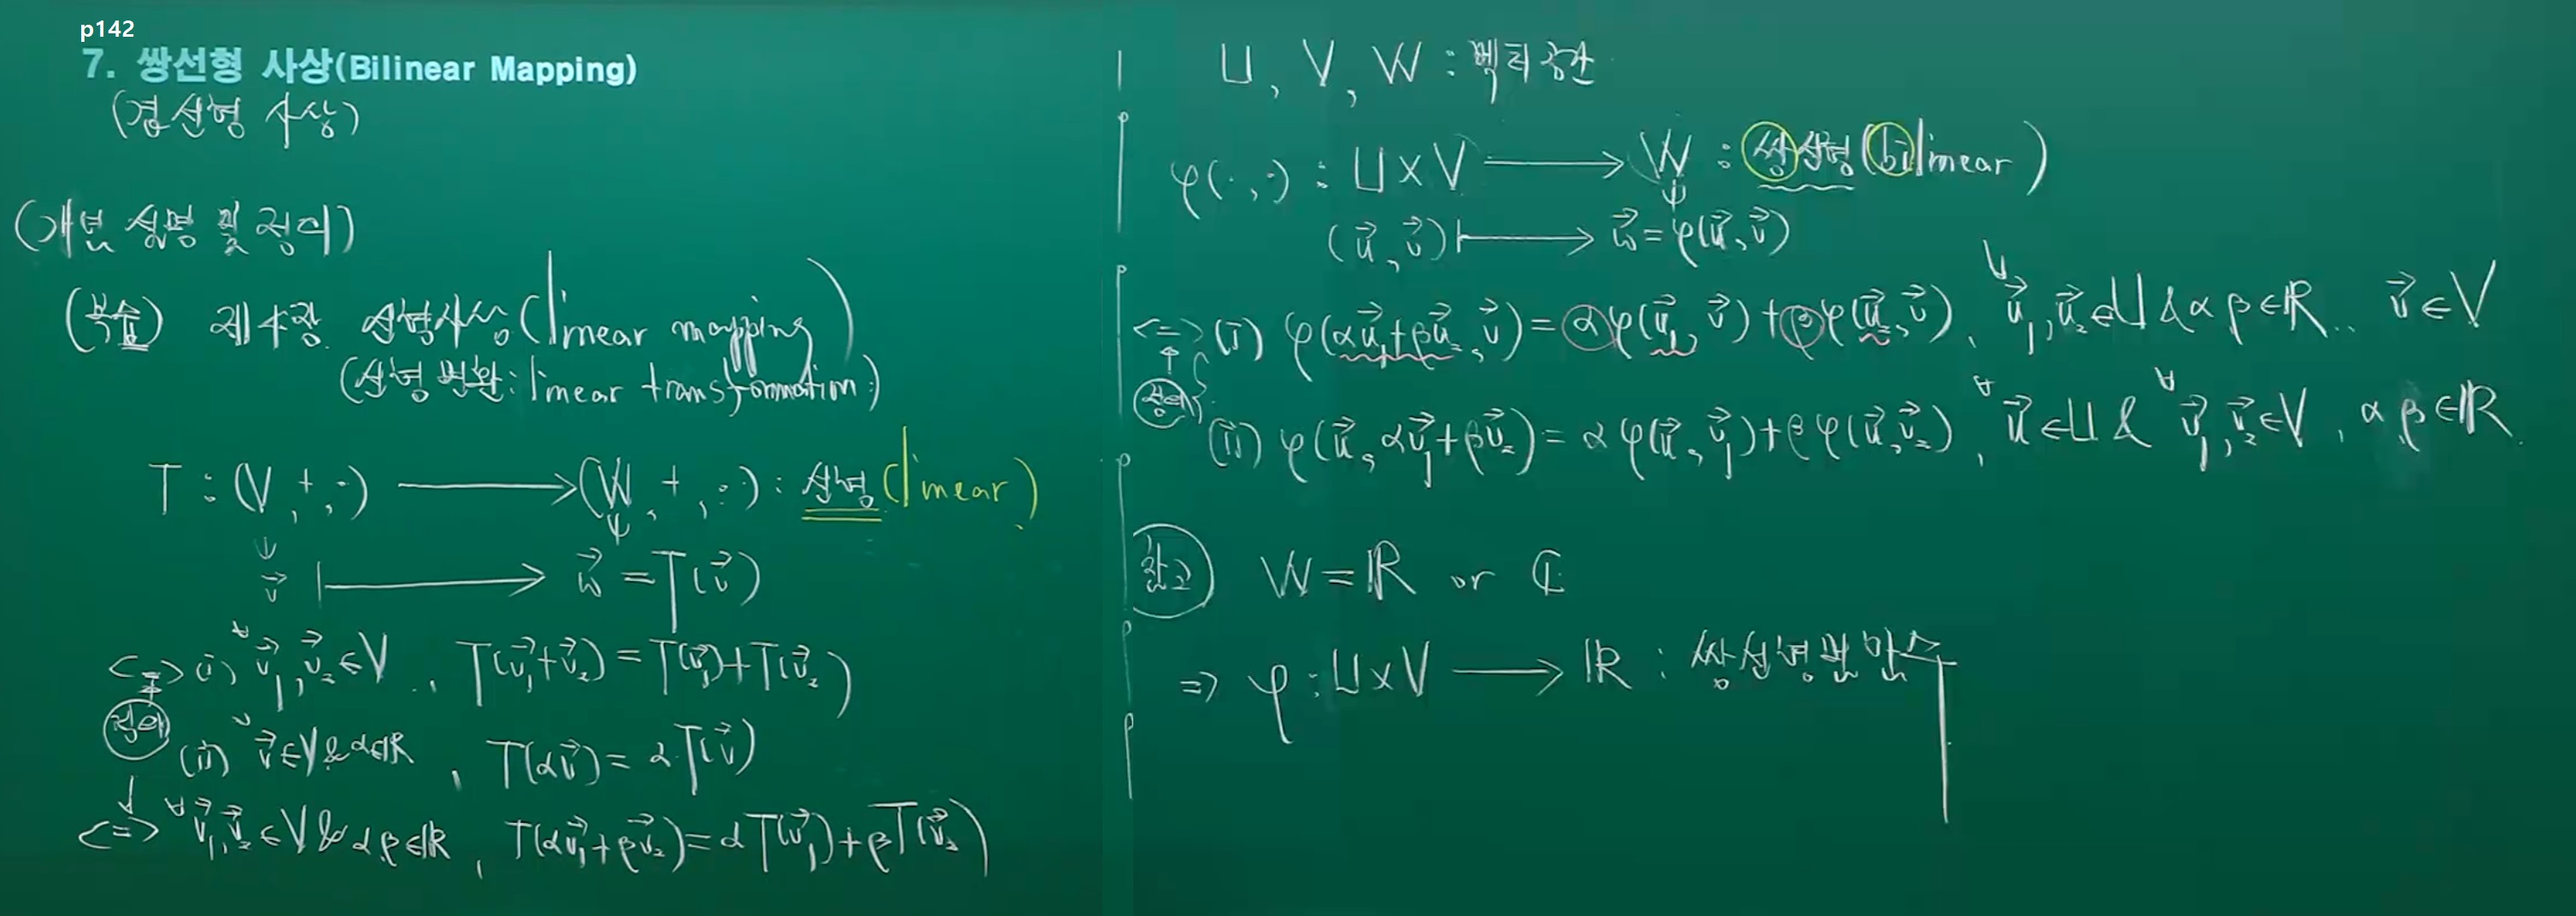 p142
7. 쌍선형 사상(Bilinear Mapping)
(겹선형 사상)
(개념 설명 및 정의)
(복습) 제4장. 선형사상(linear mapping)
(선형변환:linear transformation)
T : (V, +, ·) ⟶ (W, +, ·) : 선형(linear)
v⃗ ⟼ w⃗ = T(v⃗)
<=> (i) ∀v⃗₁, v⃗₂ ∈ V, T(v⃗₁+v⃗₂) = T(v⃗₁)+T(v⃗₂)
정의
(ii) ∀v⃗∈V & α∈ℝ, T(αv⃗) = αT(v⃗)
<=> ∀v⃗₁, v⃗₂ ∈ V & α, β∈ℝ, T(αv⃗₁+βv⃗₂) = αT(v⃗₁)+βT(v⃗₂)
U, V, W : 벡터공간
φ(·,·) : U×V ⟶ W : 쌍선형(bilinear)
(u⃗, v⃗) ⟼ w⃗ = φ(u⃗, v⃗)
<=> (i) φ(αu⃗₁+βu⃗₂, v⃗) = αφ(u⃗₁, v⃗)+βφ(u⃗₂, v⃗), ∀u⃗₁, u⃗₂∈U & α β∈ℝ, v⃗∈V
정의
(ii) φ(u⃗, αv⃗₁+βv⃗₂) = αφ(u⃗, v⃗₁)+βφ(u⃗, v⃗₂), ∀u⃗∈U & ∀v⃗₁, v⃗₂∈V, α, β∈ℝ
참고 W = ℝ or ℂ
=> φ : U×V ⟶ ℝ : 쌍선형범함수